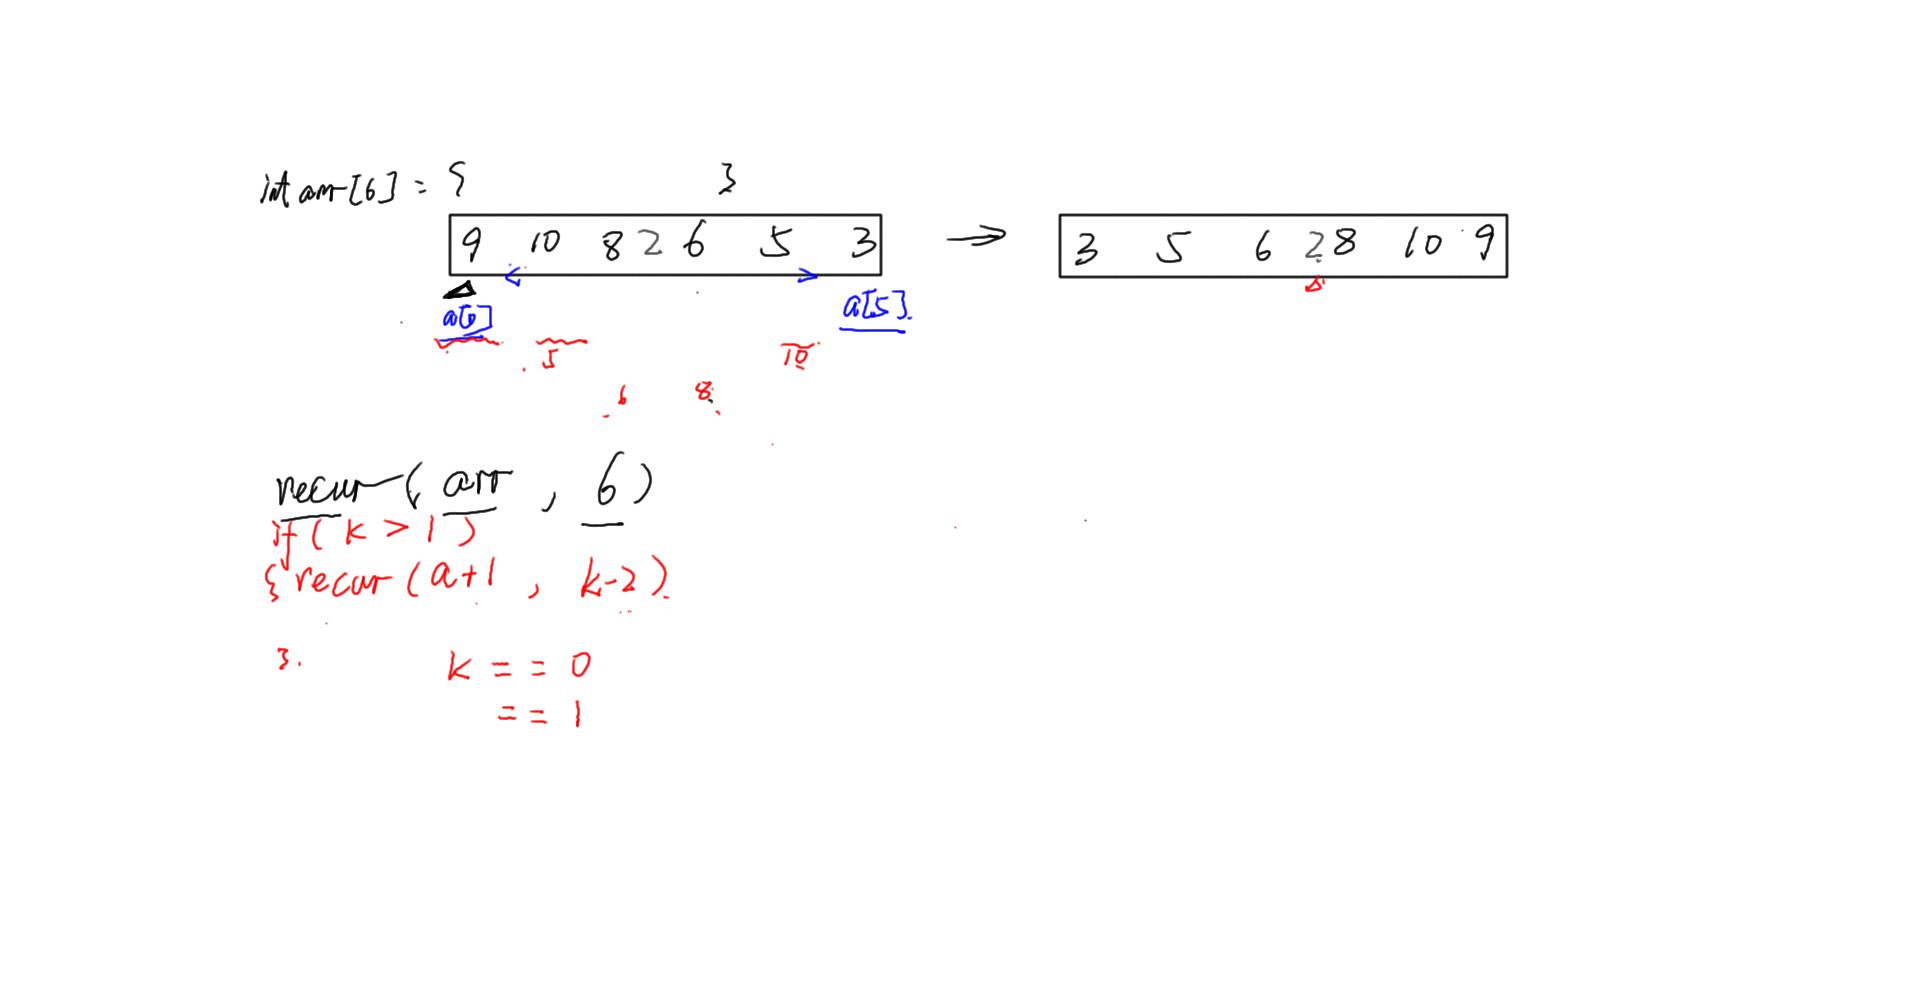 int arr[6] = { }
9 10 8 2 6 5 3 → 3 5 6 2 8 10 9
a[0] a[5]
5 10
6 8
recur(arr, 6)
if(k>1)
{recur(a+1, k-2)
}. k == 0
== 1